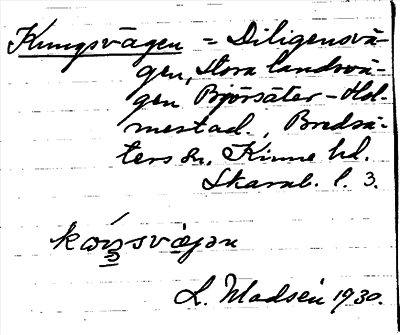 Kungsvägen = Diligensvä-
gen, Stora landsvä-
gen Björsäter-Hol-
mestad., Bredsä-
ters sn. Kinne hd.
Skarab. l. 3.
L. Madsén 1930.